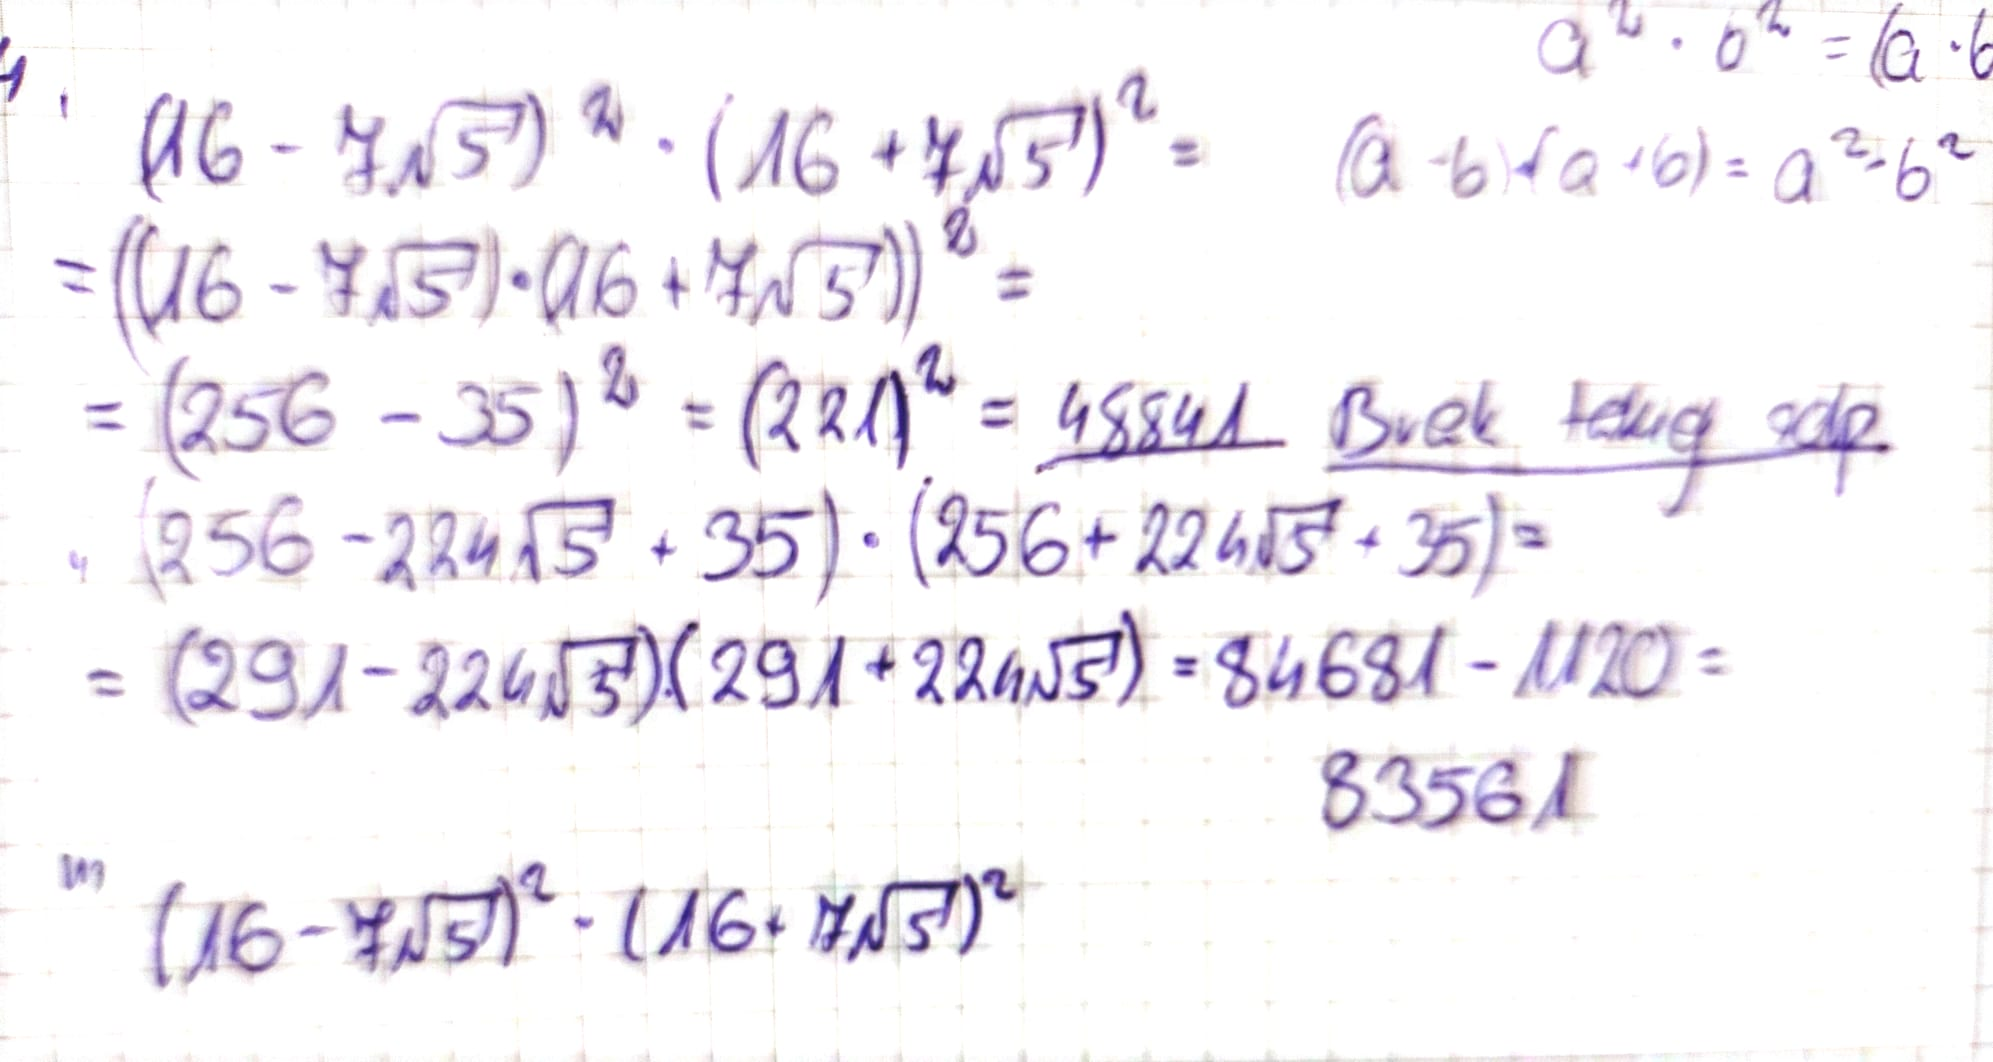 a² · b² = (a · b
4. (16 - 7√5)² · (16 + 7√5)² = (a - b) · (a + b) = a² - b²
= ((16 - 7√5) · (16 + 7√5))² =
= (256 - 35)² = (221)² = 48841 Brak takiej odp
(256 - 224√5 + 35) · (256 + 224√5 + 35) =
= (291 - 224√5)(291 + 224√5) = 84681 - 1120 =
83561
(16 - 7√5)² · (16 + 7√5)²